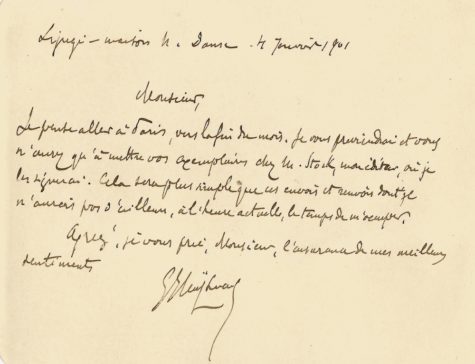 Ligugé - maison N. Dame. 4 Janvier 1901
Monsieur,
Je pense aller à Paris, vers la fin du mois. Je vous préviendrai et vous
n'aurez qu'à mettre vos exemplaires chez M. Stock, mon éditeur, où je
les signerai. Cela sera plus simple que ces envois et renvois dont je
n'aurais pas d'ailleurs, à l'heure actuelle, le temps de m'occuper.
Agréez, je vous prie, Monsieur, l'assurance de mes meilleurs
sentiments
G Huysmans